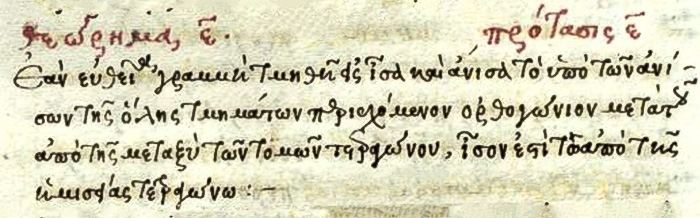 θεώρημα, ε̄. πρότασις ε̄
Ἐὰν εὐθεῖα γραμμὴ τμηθῇ εἰς ἴσα καὶ ἄνισα τὸ ὑπὸ τῶν ἀνί-
σων τῆς ὅλης τμημάτων περιεχόμενον ὀρθογώνιον μετὰ τοῦ
ἀπὸ τῆς μεταξὺ τῶν τομῶν τετραγώνου, ἴσον ἐστὶ τῷ ἀπὸ τῆς
ἡμισείας τετραγώνω :~